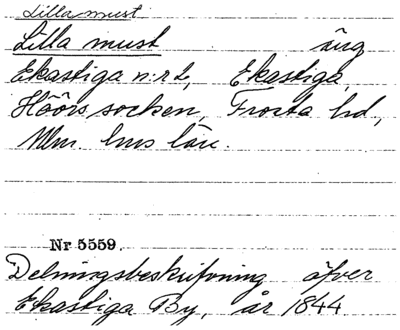 Lilla must
Lilla must äng
Ekastiga n:r 2, Ekastiga,
Höörs socken, Frosta hd,
Mlm. hus län.
Nr 5559.
Delningsbeskrifvning öfver
Ekastiga By, år 1844